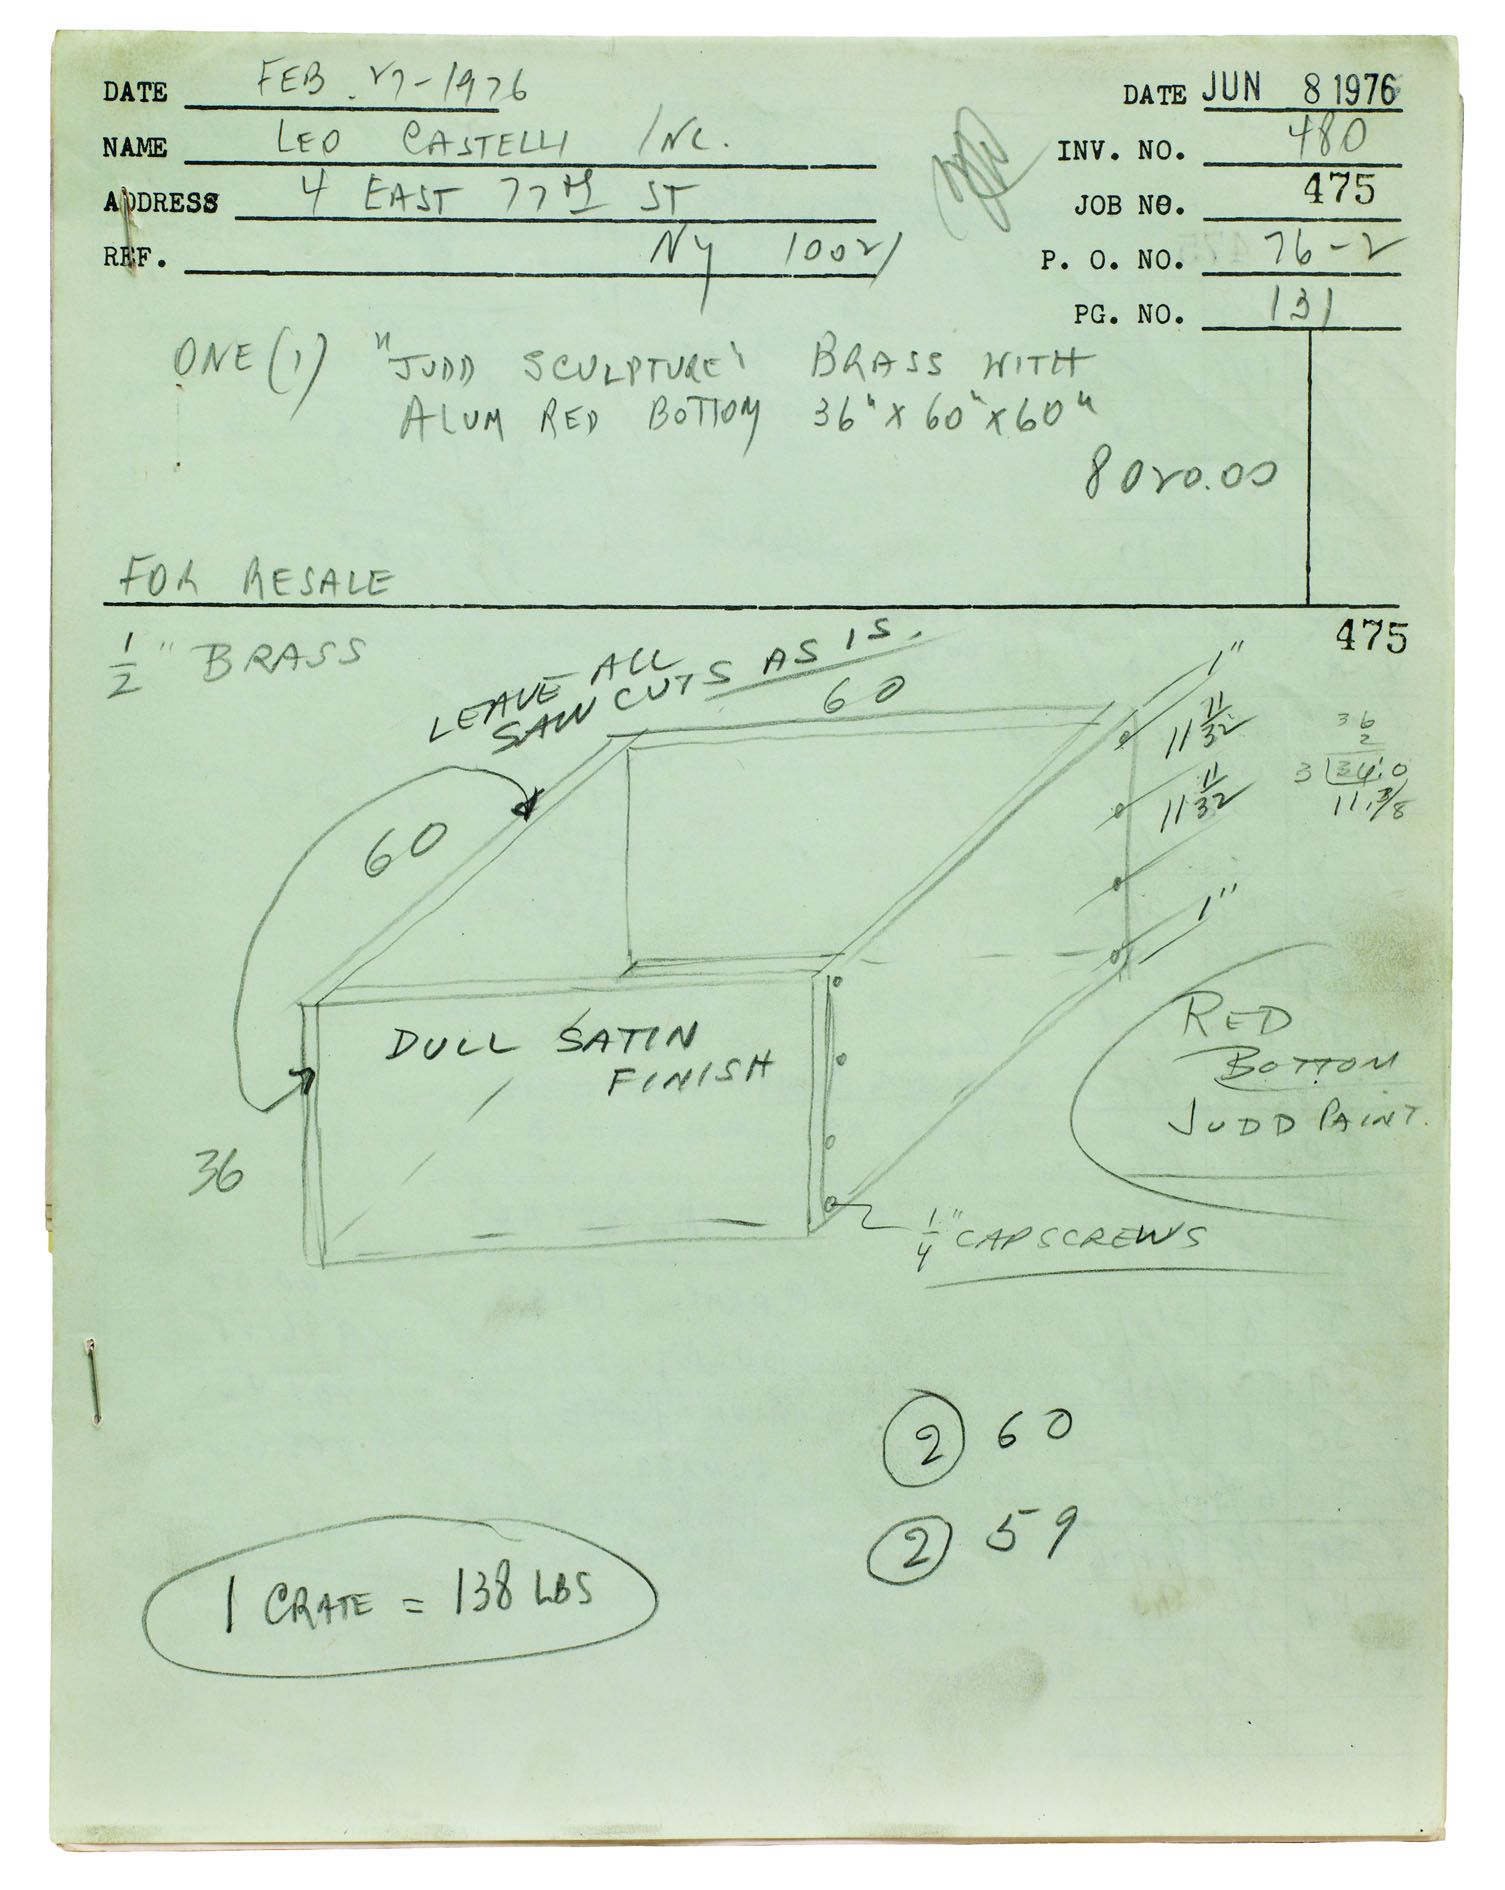 DATE FEB. 27-1976
DATE JUN 8 1976
NAME LEO CASTELLI INC.
INV. NO. 480
ADDRESS 4 EAST 77TH ST
JOB NO. 475
REF. NY 10021
P. O. NO. 76-2
PG. NO. 131
ONE (1) "JUDD SCULPTURE" BRASS WITH
ALUM RED BOTTOM 36" X 60" X 60"
8020.00
FOR RESALE
475
1/2" BRASS
LEAVE ALL
SAW CUTS AS IS.
60
1"
11 11/32
11 11/32
36
2
3 34.0
11.3/8
60
1"
DULL SATIN
FINISH
RED
BOTTOM
JUDD PAINT.
36
1/4" CAPSCREWS
2 60
2 59
1 CRATE = 138 LBS